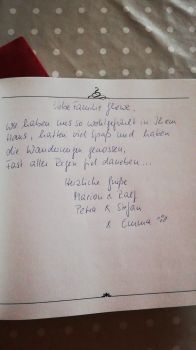 Liebe Familie
Wir haben uns so wohlgefühlt in Ihrem
Haus, hatten viel Spaß und haben
die Wanderungen genossen,
Fast aller Regen fiel daneben...
Herzliche Grüße
Marion & Ralf
Petra & Stefan
& Emma